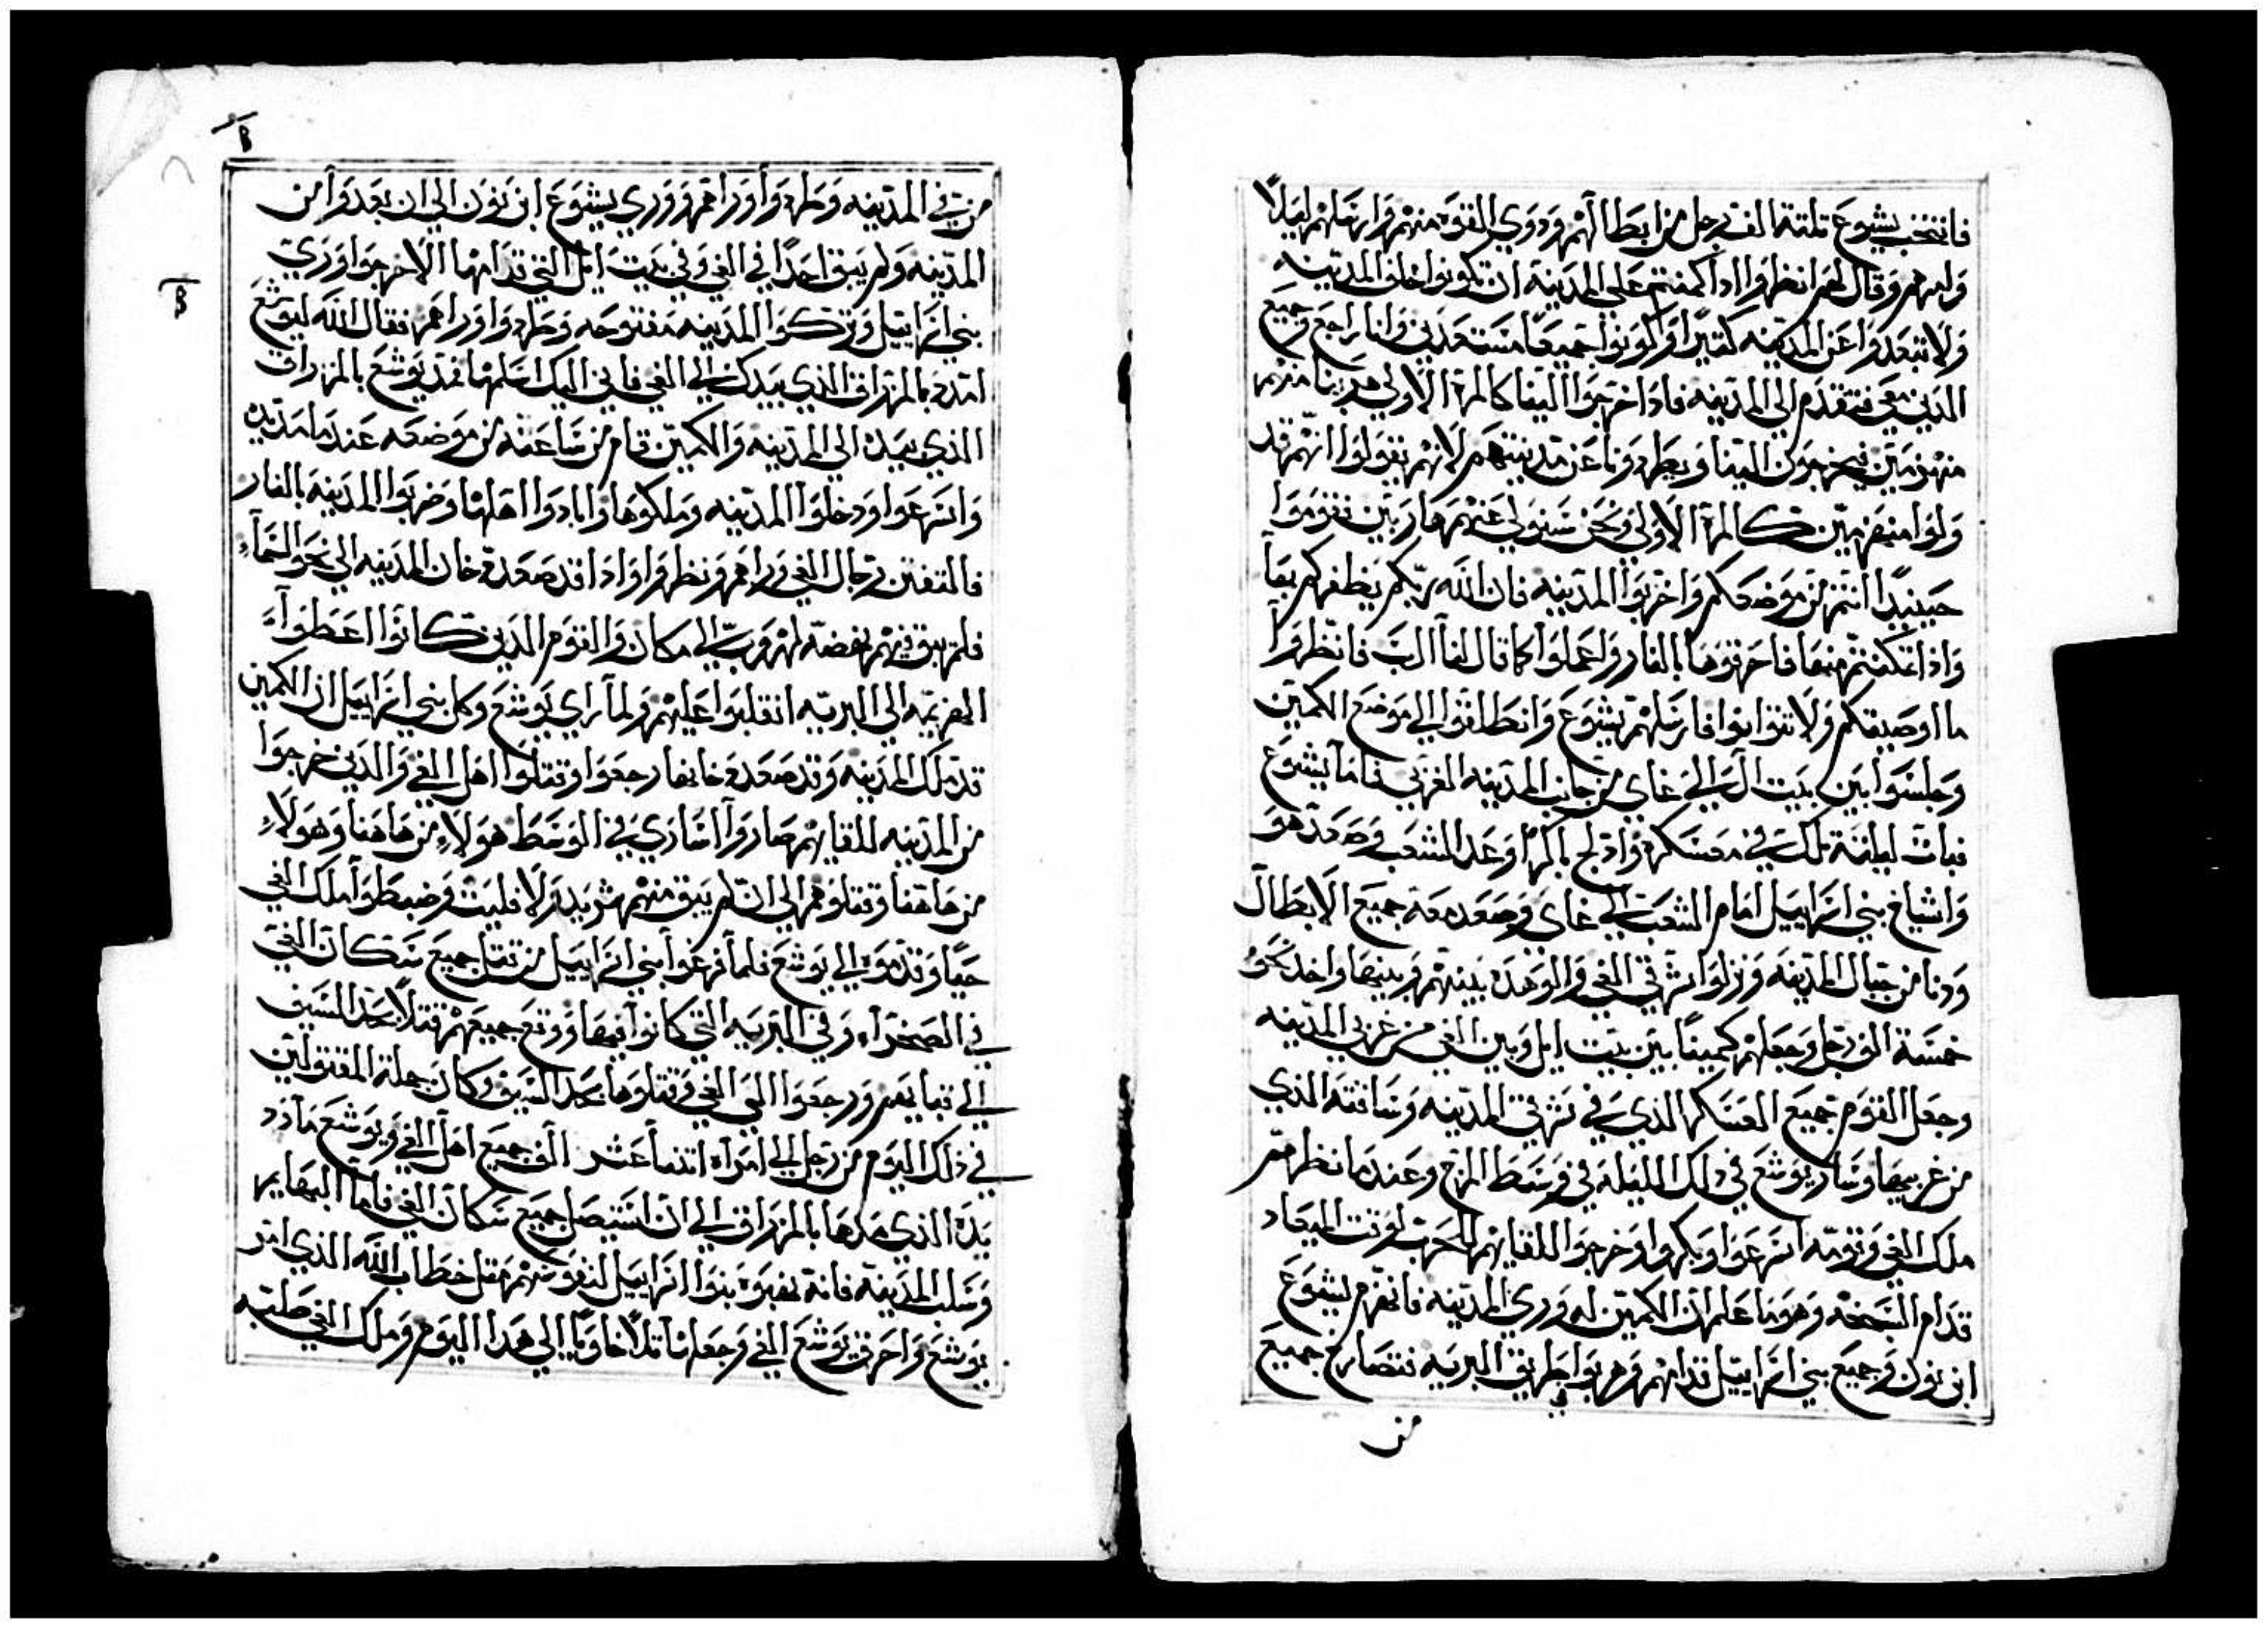 فانتخب يشوع تلتة الف رجل من ابطالهم ودوي القوه منهم وارسلهم ليلاً
وامرهم وقال لهم انظروا اذا كمنتم علي المدينة ان تكونوا خلف المدينه
ولا تبعدوا عن المدينه كتيرا وكونوا جميعاً مستعدين وانا راجع وجميع
الدين معي نتقدم الي المدينه فاذا خرجوا الينا كالمرة الاولي هربنا منهم
منهزمين فيخرجون الينا ويطردونا عن مدينتهم لانهم يقولوا انهم قد
ولوا منهزمين كالمرة الاولي ونحن سنولي عنهم هاربين نتقوموا
حينيدا انتم من موضعكم واخربوا المدينه فان الله ربكم يظفركم بها
واذا تمكنتم منها فاحرقوها بالنار واعملوا كما قال لنا الرب فانظروا
ما اوصيتكم ولا تتوانوا فارسلهم يشوع وانطلقوا الي موضع الكمين
وجلسوا بين بيت ال والي غاي من جانب المدينه الغربي فاما يشوع
فبات ليلته تلك في معسكره وادلج باكرا وعد الشعب وصعد هو
واشياخ بني اسراييل امام الشعب الي غاي وصعد معه جميع الابطال
ودنا من جبال المدينه ونزلوا شرقي الغي والوهده بينهم وبينها واخد نحو
خمسة الف رجل وجعلهم كمينا بين بيت ايل وبين الغي من غربي المدينه
وجعل القوم جميع العسكر الذي في شرقي المدينه وساقته الذي
من غربيها وسار يوشع في دلك الليله في وسط المرج وعندما نظرهم
ملك الغي وقومه اسرعوا وبكروا وخرجوا للقايهم للحرب لوقت الميعاد
قدام السبخه وهو ما علم ان الكمين له وري المدينه فانهزم يشوع
ابن نون وجميع بني اسراييل قدامهم وهربوا في طريق البريه فتصارخ جميع
من
من في المدينه وطردوا وراهم ووري يشوع ابن نون الي ان بعدوا من
المدينه ولم يبق احدًا في الغي وفي بيت ايل التي قدامها الا خرجوا وري
بني اسراييل وتركوا المدينه مفتوحه وطردوا وراهم فقال الله ليوشع
امدد بالمزراق الذي بيدك الي الغي فاني اليك اسلمها فمد يوشع بالمزراق
الذي بيده الي المدينه والكمين قام من ساعته من موضعه عندما مد يده
واسرعوا ودخلوا المدينه وملكوها وابادوا اهلها وضربوا المدينه بالنار
فالتفتن رجال الغي وراهم ونظروا واذا قد صعد دخان المدينه الي نحو السماء
فلم يبق فيهم نهضه لهروب الي مكان والقوم الدين كانوا اعطوا
الهزيمه الي البريه انقلبوا عليهم ولما راي يوشع وكل بني اسراييل ان الكمين
قد ملك المدينه وقد صعد دخانها رجعوا وقتلوا اهل الغي والدين خرجوا
من المدينه للقايهم صاروا اساري في الوسط هولاء من هاهنا وهولاء
من هاهنا وقتلوهم الي ان لم يبق منهم شريد ولا فليت وضبطوا ملك الغي
حيا وقدموه الي يوشع فلما فرغوا بني اسراييل من قتل جميع سكان الغي
في الصحراء وفي البريه التي كانوا فيها ووقع جميعهم قتلا بحد السيف
الي فنايهم ورجعوا الي الغي وقتلوها بحد السيف وكان جملة المقتولين
في ذلك اليوم من رجل الي امراه اتنا عشر الف جميع اهل الغي ويوشع ما رد
يده الذي مدها بالمزراق الي ان استيصل جميع سكان الغي فاما البهايم
وسلب المدينه فانه نهبوه بنوا اسراييل لنفوسهم مثل خطاب الله الذي امر
يوشع واحرق يوشع الغي وجعلها تلا خاويا الي هدا اليوم وملك الغي صلبه